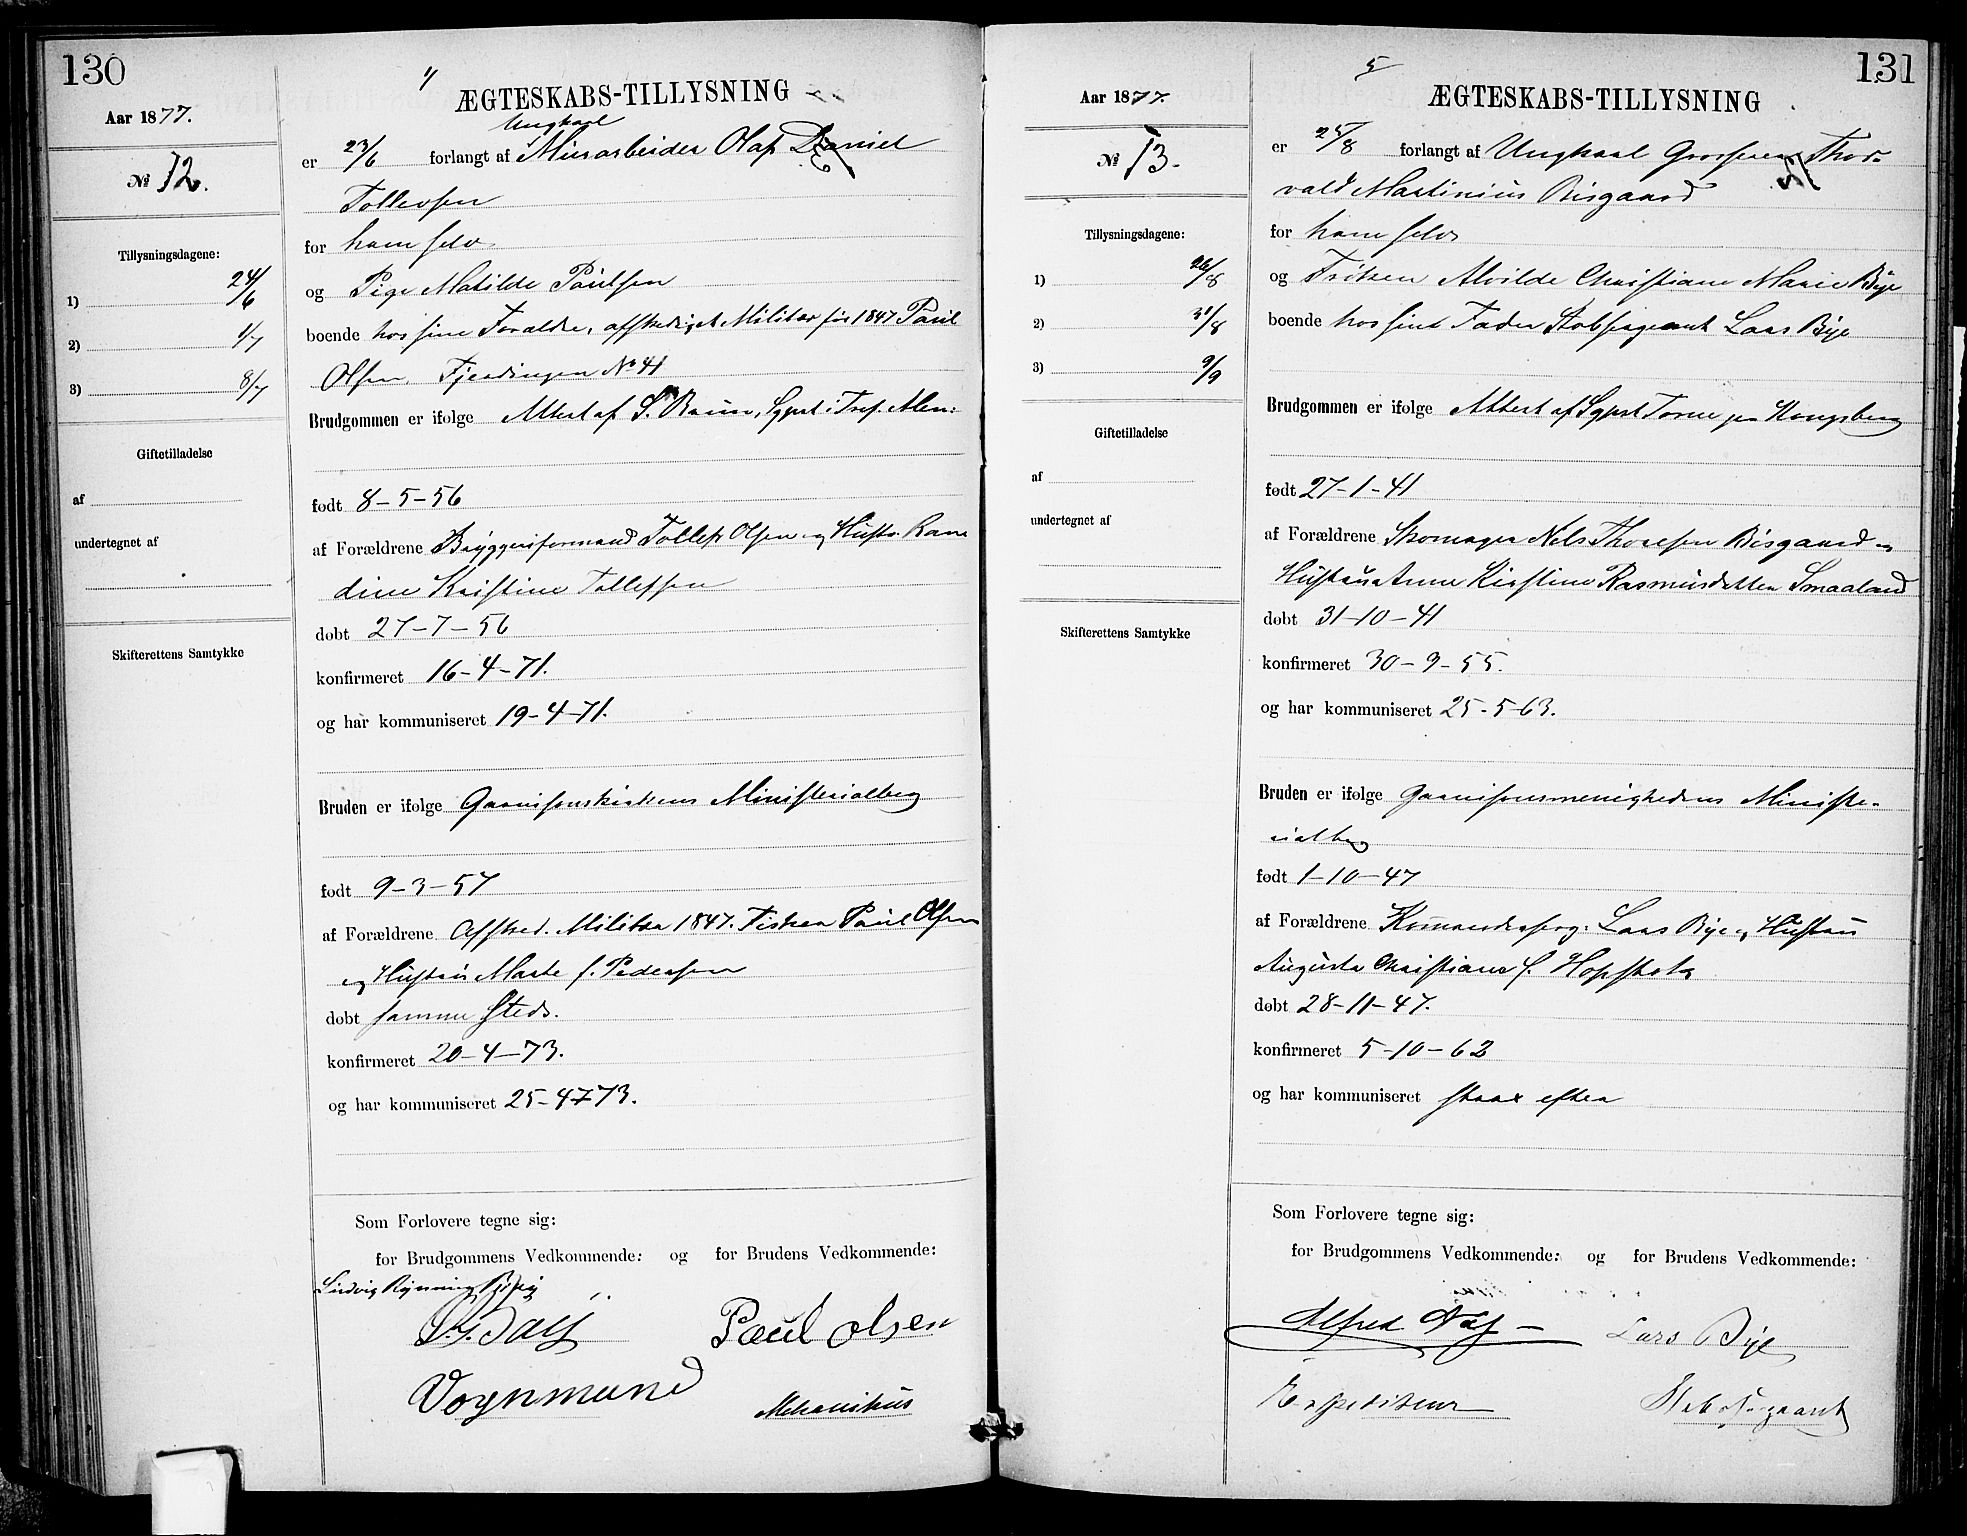 130
Aar 1877.
No 12.
Tillysningsdagene:
1) 24/6
2) 1/7
3) 8/7
Giftetilladelse
af
undertegnet af
Skifterettens Samtykke
ÆGTESKABS-TILLYSNING
Ungkarl
er 23/6 forlangt af Murarbeider Olaf Daniel
Tollevsen
for ham selv
og Pige Matilde Paulsen
boende hos sine Forældre, afskediget Militær før 1847 Paul
Olsen, Fjerdingen No 41
Brudgommen er ifølge Attest af S. Bruun, Sgpst i Tref. Men:
født 8-5-56
af Forældrene Bryggeriformand Tollef Olsen og Hustr. Ran
dine Kristine Tollefsen
døbt 27-7-56
konfirmeret 16-4-71.
og har kommuniseret 19-4-71.
Bruden er ifølge Garnisonskirkens Ministerialbog
født 9-3-57
af Forældrene Afsked. Militær 1847. Fisker Paul Olsen
og Hustru Marte f. Pedersen
døbt samme Steds.
konfirmeret 20-4-73.
og har kommuniseret 25-4-73.
Som Forlovere tegne sig:
for Brudgommens Vedkommende: og for Brudens Vedkommende:
Ludvig Rynning
Paul Olsen
Vognmand Mekanikus
131
Aar 1877.
No 13.
Tillysningsdagene:
1) 26/8
2) 31/8
3) 9/9
Giftetilladelse
af
undertegnet af
Skifterettens Samtykke
5
ÆGTESKABS-TILLYSNING
er 25/8 forlangt af Ungkarl Grosserer Thor-
vald Martinius Bisgaard
for ham selv
og Frøken Alvilde Christiane Marie Bye
boende hos sin Fader Stabsergeant Lars Bye
Brudgommen er ifølge Attest af Sgpst Torne paa Kongsberg
født 27-1-41
af Forældrene Skomager Nels Thoresen Bisgaard og
Hustru Anne Kirstine Rasmusdatter Smaaland
døbt 31-10-41
konfirmeret 30-9-55.
og har kommuniseret 25-5-63.
Bruden er ifølge Garnisonsmenighedens Ministe-
rialbog
født 1-10-47
af Forældrene Kommandersergt. Lars Bye og Hustru
Augusta Christiane f. Hopstok
døbt 28-11-47.
konfirmeret 5-10-62
og har kommuniseret strax efter
Som Forlovere tegne sig:
for Brudgommens Vedkommende: og for Brudens Vedkommende:
Alfred Lars Bye
Expediteur Stabsergeant